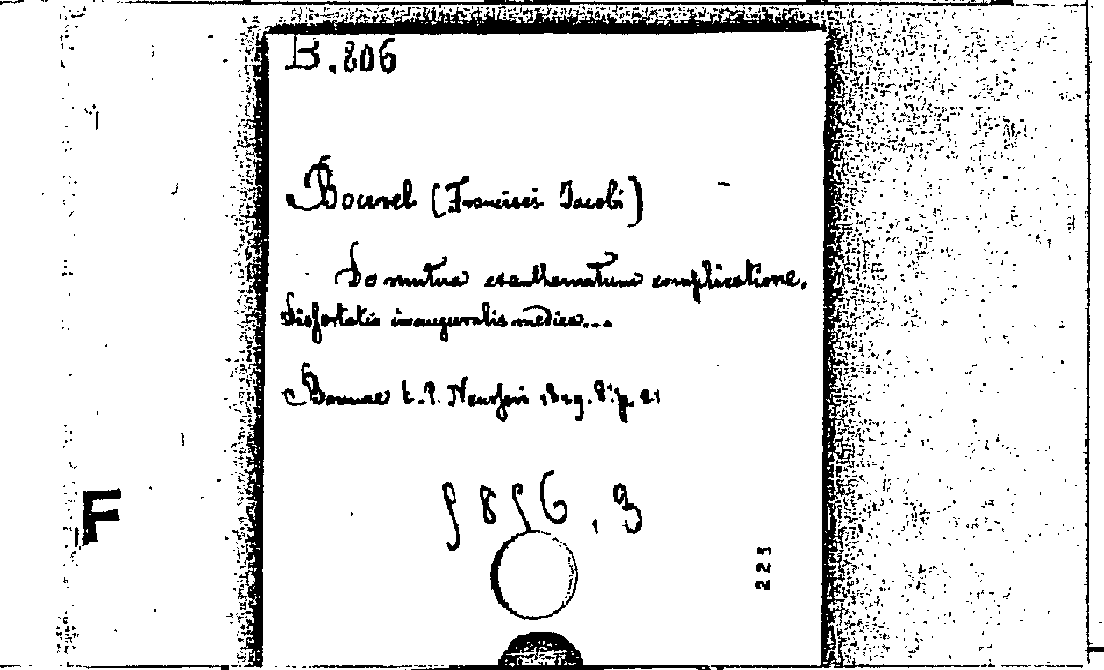 B.806
Bourel (Francisci Jacobi)
De mutua exanthematum complicatione.
Dissertatio inauguralis medica...
Bonnae t. P. Neusseri 1829. 8° p. 21
F
225